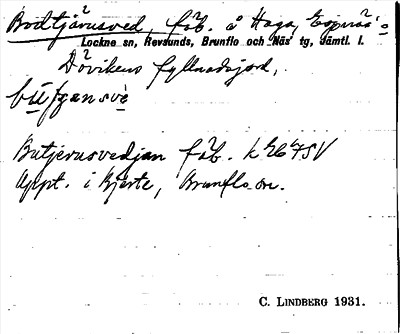 Bodtjärnsved, fäb. å Haga, Espnäs o
Lockne sn, Revsunds, Brunflo och Näs tg, Jämtl. l.
Dövikens fyllnadsjord,
Butjernsvedjan fäb. k 26 7SV
Uppt. i Bjerte, Brunflo sn.
C. LINDBERG 1931.